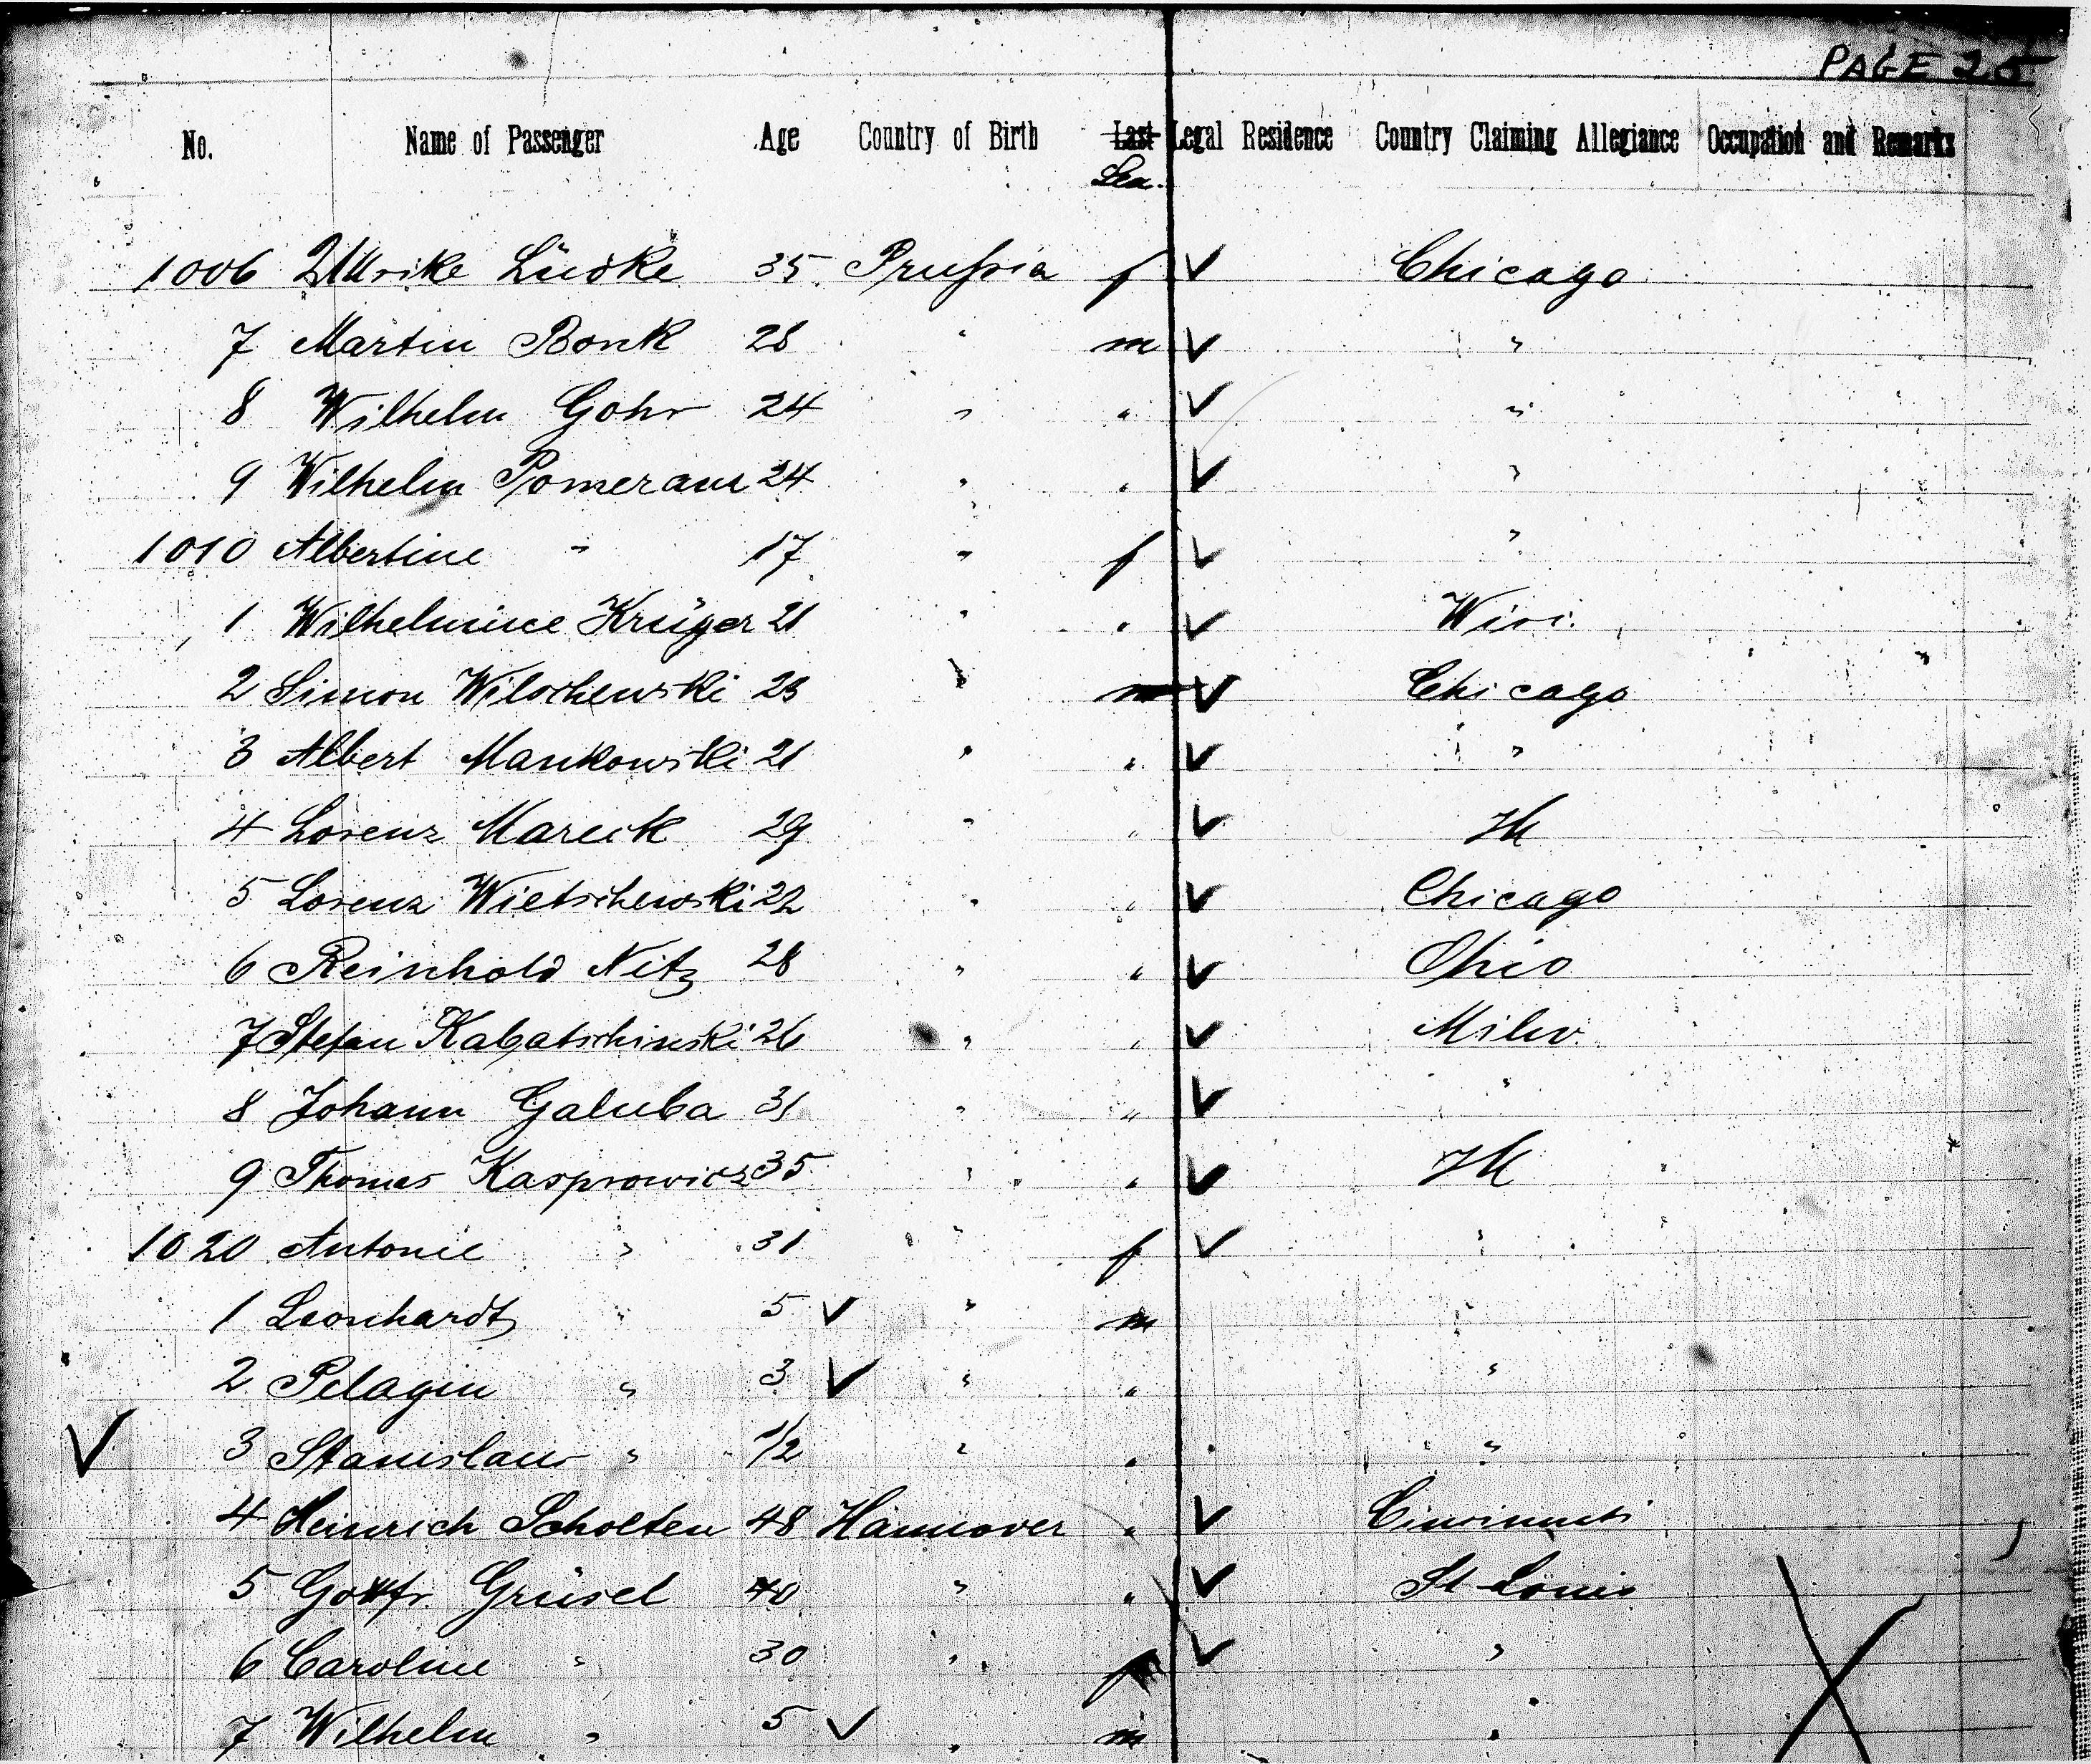 PAGE 25
No. Name of Passenger Age Country of Birth Last Legal Residence Country Claiming Allegiance Occupation and Remarks
Sex.
1006 Ulrike Lüdke 35 Prussia f ✓ Chicago
7 Martin Bonk 28 " m ✓ "
8 Wilhelm Gohr 24 " " ✓ "
9 Wilhelm Pomeranz 24 " " ✓ "
1010 Albertine " 17 " f ✓ "
1 Wilhelmine Krüger 21 " " ✓ Wisc.
2 Simon Wilschewski 23 " m ✓ Chicago
3 Albert Mankowski 21 " " ✓ "
4 Lorenz Mareck 29 " " ✓ Ill
5 Lorenz Wietschewski 22 " " ✓ Chicago
6 Reinhold Nitz 28 " " ✓ Ohio
7 Stefan Kabatschinski 26 " " ✓ Milw.
8 Johann Galuba 31 " " ✓ "
9 Thomas Kasprowicz 35 " " ✓ Ill
1020 Antonie " 31 " f ✓ "
1 Leonhardt " 5 ✓ " m "
2 Pelagin " 3 ✓ " " "
✓ 3 Stanislaus " 1/2 " " "
4 Heinrich Scholten 48 Hannover " ✓ Cincinnati
5 Gottfr. Grüsel 40 " " ✓ St Louis
6 Caroline " 30 " f ✓ "
7 Wilhelm " 5 ✓ " m "